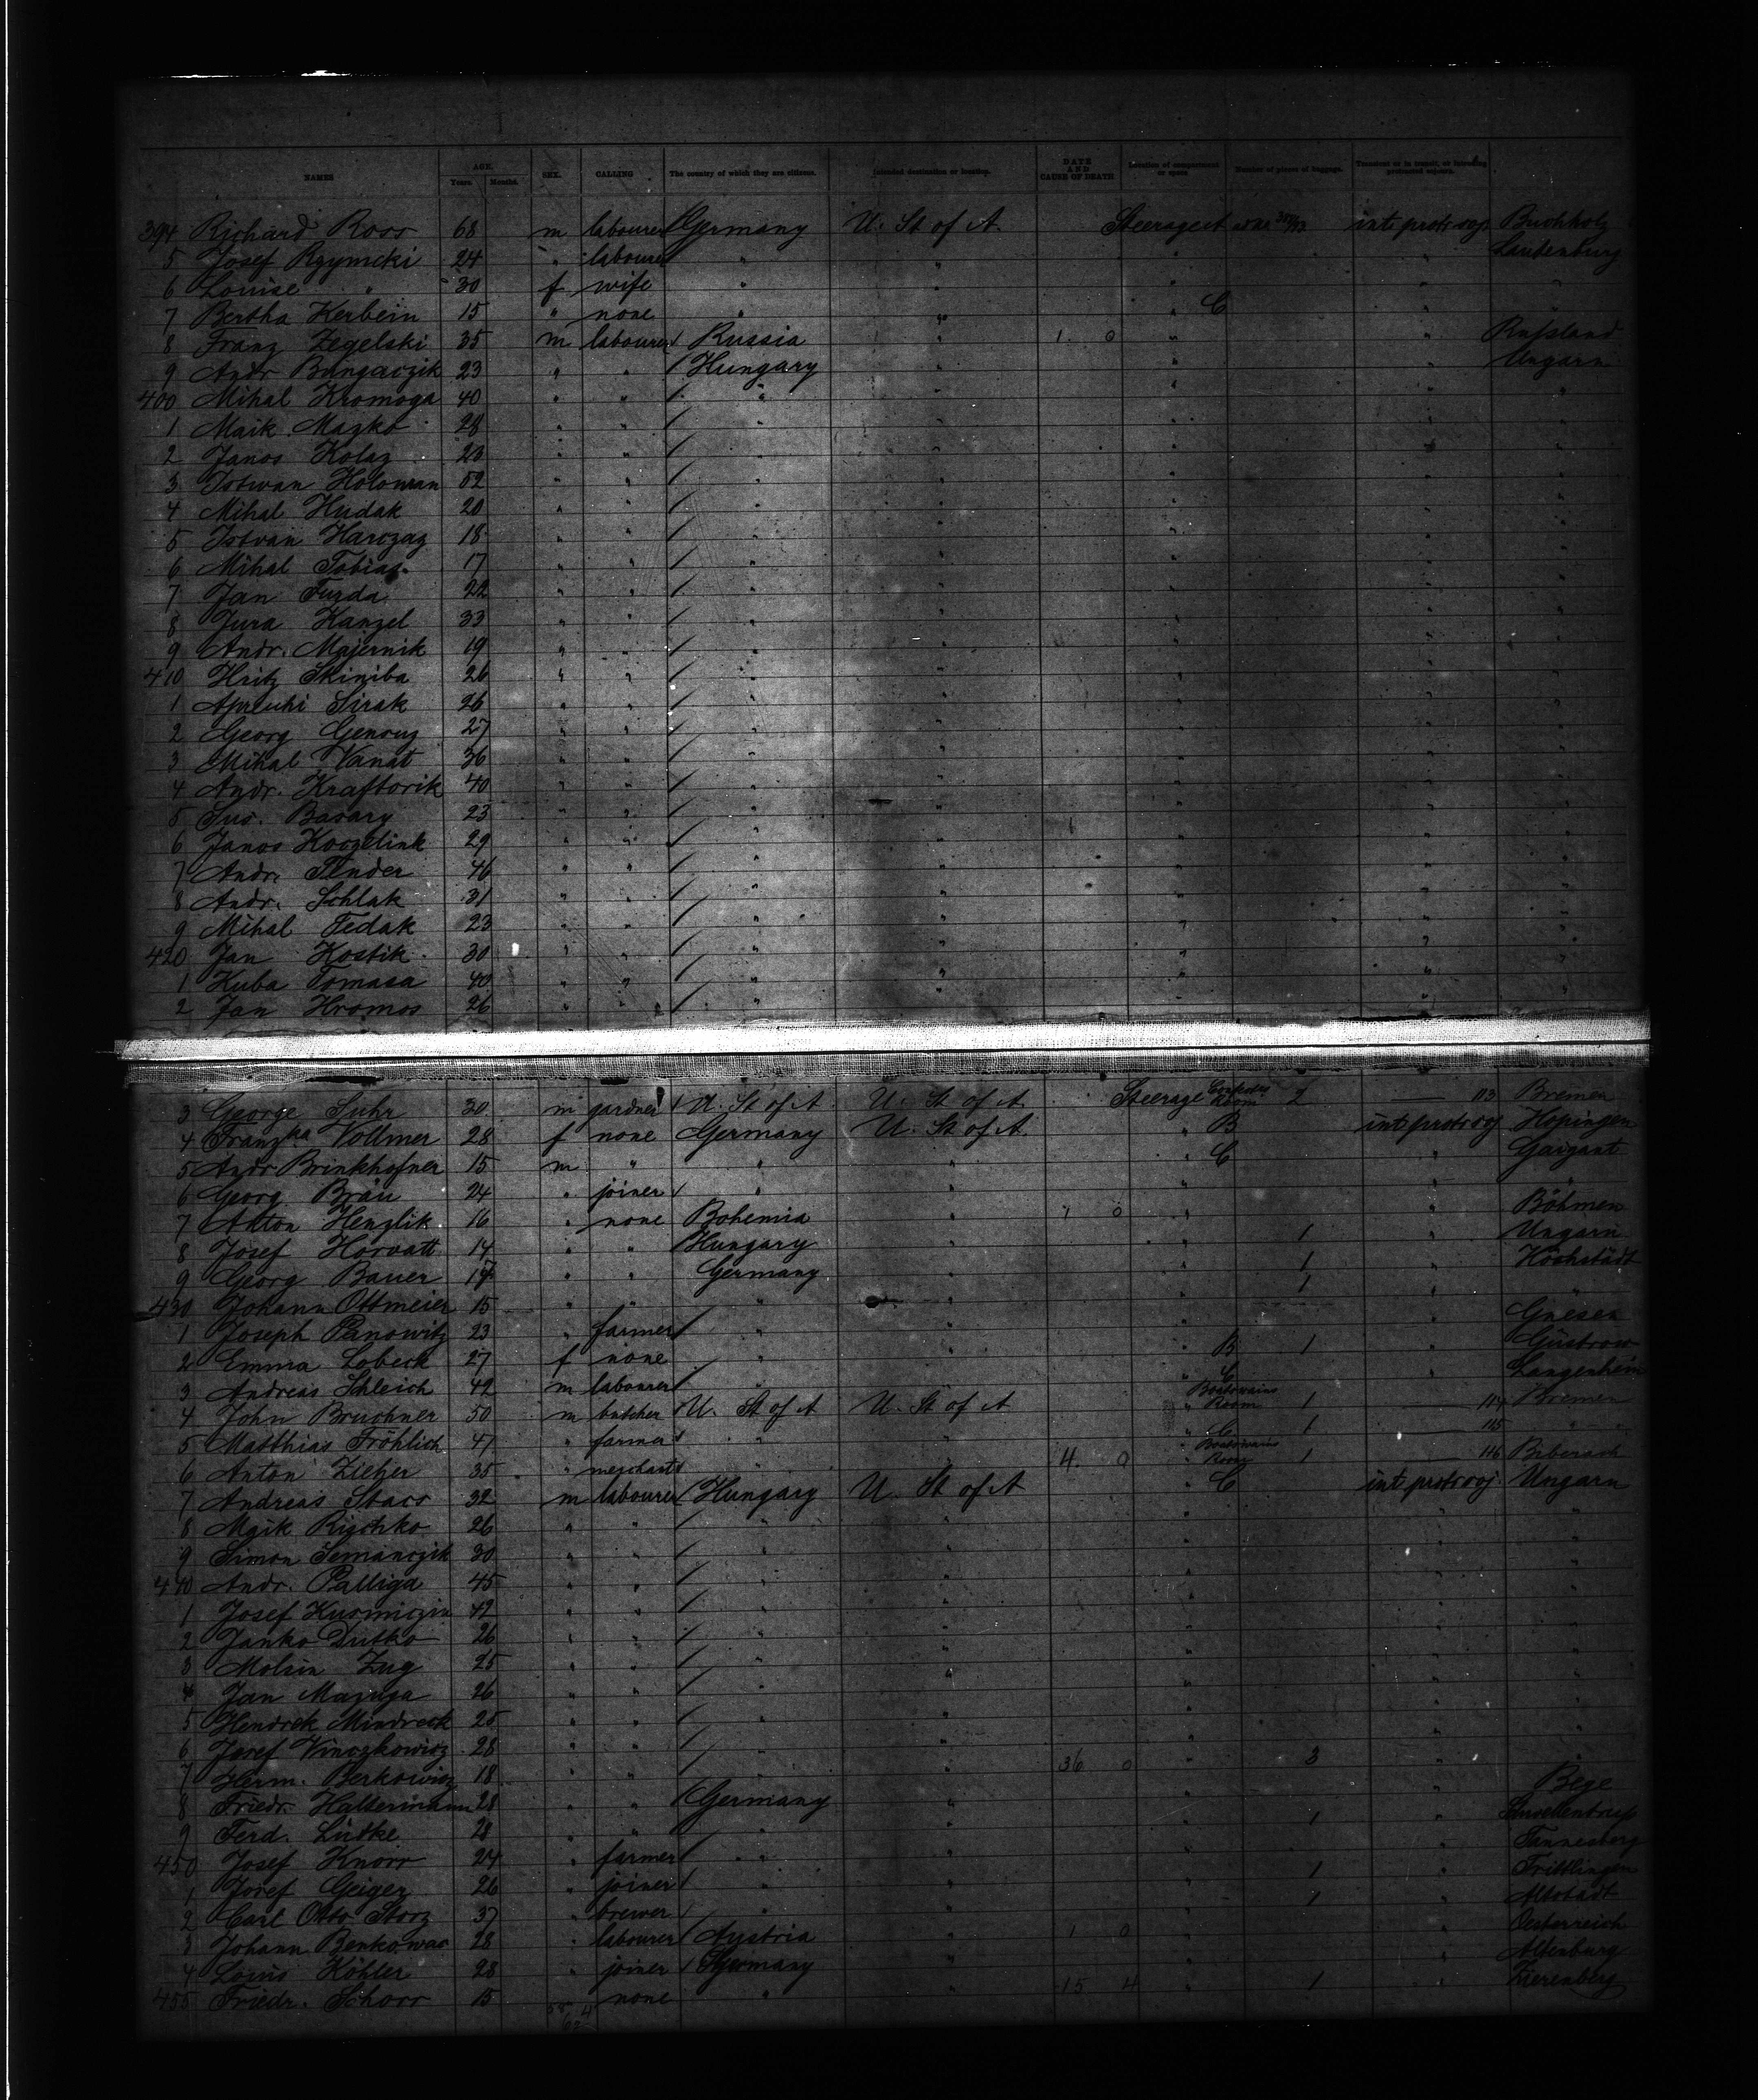 NAMES AGE. Years Months. SEX. CALLING The country of which they are citizens. Intended destination or location. DATE AND CAUSE OF DEATH Location of compartment or space Number of pieces of baggage. Transient or in transit, or intending protracted sojourn.
394 Richard Ross 68 m labourer Germany U. St of A. Steerage int protr soj Buchholz
5 Josef Rzymcki 24 " labourer " " " " Lautenburg
6 Louise " 30 f wife " " " "
7 Bertha Kerbein 15 " none " " " C "
8 Franz Zegelski 35 m labourer Russia " 1 0 " " Russland
9 Andr Bungaczik 23 " " Hungary " " " Ungarn
400 Mihal Kromoga 40 " " " " " " "
1 Maik Mazko 28 " " " " " " "
2 Janos Kolaz 23 " " " " " " "
3 Istwan Holowran 52 " " " " " " "
4 Mihal Hudak 20 " " " " " " "
5 Istvan Harczaz 18 " " " " " " "
6 Mihal Tobias 17 " " " " " " "
7 Jan Furda 22 " " " " " " "
8 Jura Kanzel 33 " " " " " " "
9 Andr. Majernik 19 " " " " " " "
410 Hritz Skiniba 26 " " " " " " "
1 Sirak 26 " " " " " " "
2 Georg Genouz 27 " " " " " " "
3 Mihal Vanat 36 " " " " " " "
4 Andr. Kraftorik 40 " " " " " " "
5 Basary 23 " " " " " " "
6 Janos Koczelink 29 " " " " " " "
7 Andr. Tender 46 " " " " " " "
8 Andr. Schlak 31 " " " " " " "
9 Mihal Fedak 23 " " " " " " "
420 Jan Kostik 30 " " " " " " "
1 Kuba Tomasa 40 " " " " " " "
2 Jan Hromos 26 " " " " " " "
3 George Suhr 30 m gardner U. St of A U. St of A. Steerage Room 2 113 Bremen
4 Franzka Vollmer 28 f none Germany U. St of A. " B int protr soj Hopingen
5 Andr Brinkhofner 15 m " " " " C "
6 Georg Bräu 24 " joiner " " " " "
7 Anton Henzlik 16 " none Bohemia " 1 0 " " Böhmen
8 Josef Horvatt 14 " " Hungary " " 1 " Ungarn
9 Georg Bauer 17 " " Germany " " 1 " Höchstädt
430 Johann Ottmeier 15 " " " " " 1 " "
1 Joseph Panowitz 23 " farmer " " " " Gnesen
2 Emma Lobeck 27 f none " " " B 1 " Güstrow
3 Andreas Schleich 42 m labourer " " " C " Langenheim
4 John Bruchner 50 m butcher U. St of A U. St of A " Boatswains Room 1 114 Bremen
5 Matthias Fröhlich 47 " farmer " " " C 1 115 "
6 Anton Zieher 35 " merchant " " 4 0 " Boatswains Room 1 116 Biberach
7 Andreas Stacs 32 m labourer Hungary U. St of A " C int protr soj. Ungarn
8 Maik Rischko 26 " " " " " " "
9 Simon Semanczik 30 " " " " " " "
440 Andr. Palliga 45 " " " " " " "
1 Josef Kusmiczin 42 " " " " " " "
2 Janko Dutko 26 " " " " " " "
3 Molsin Zug 25 " " " " " " "
4 Jan Mazuga 26 " " " " " " "
5 Hendrek Mindreck 25 " " " " " " "
6 Josef Vinczkowicz 28 " " " " " " "
7 Herm. Berkowicz 18 " " " " 36 0 " 3 " "
8 Friedr. Haltermann 28 " " Germany " " " Bege
9 Ferd. Lütke 28 " " " " " 1 "
450 Josef Knorr 24 " farmer " " " " Tannesberg
1 Josef Geiger 26 " joiner " " " 1 " Frittlingen
2 Carl Otto Storz 37 " brewer " " " 1 " Altstadt
3 Johann Benkowac 28 " labourer Austria " 1 0 " " Oesterreich
4 Louis Köhler 28 " joiner Germany " " " Altenburg
455 Friedr. Schorr 15 " none " " 15 4 " 1 " Zierenberg